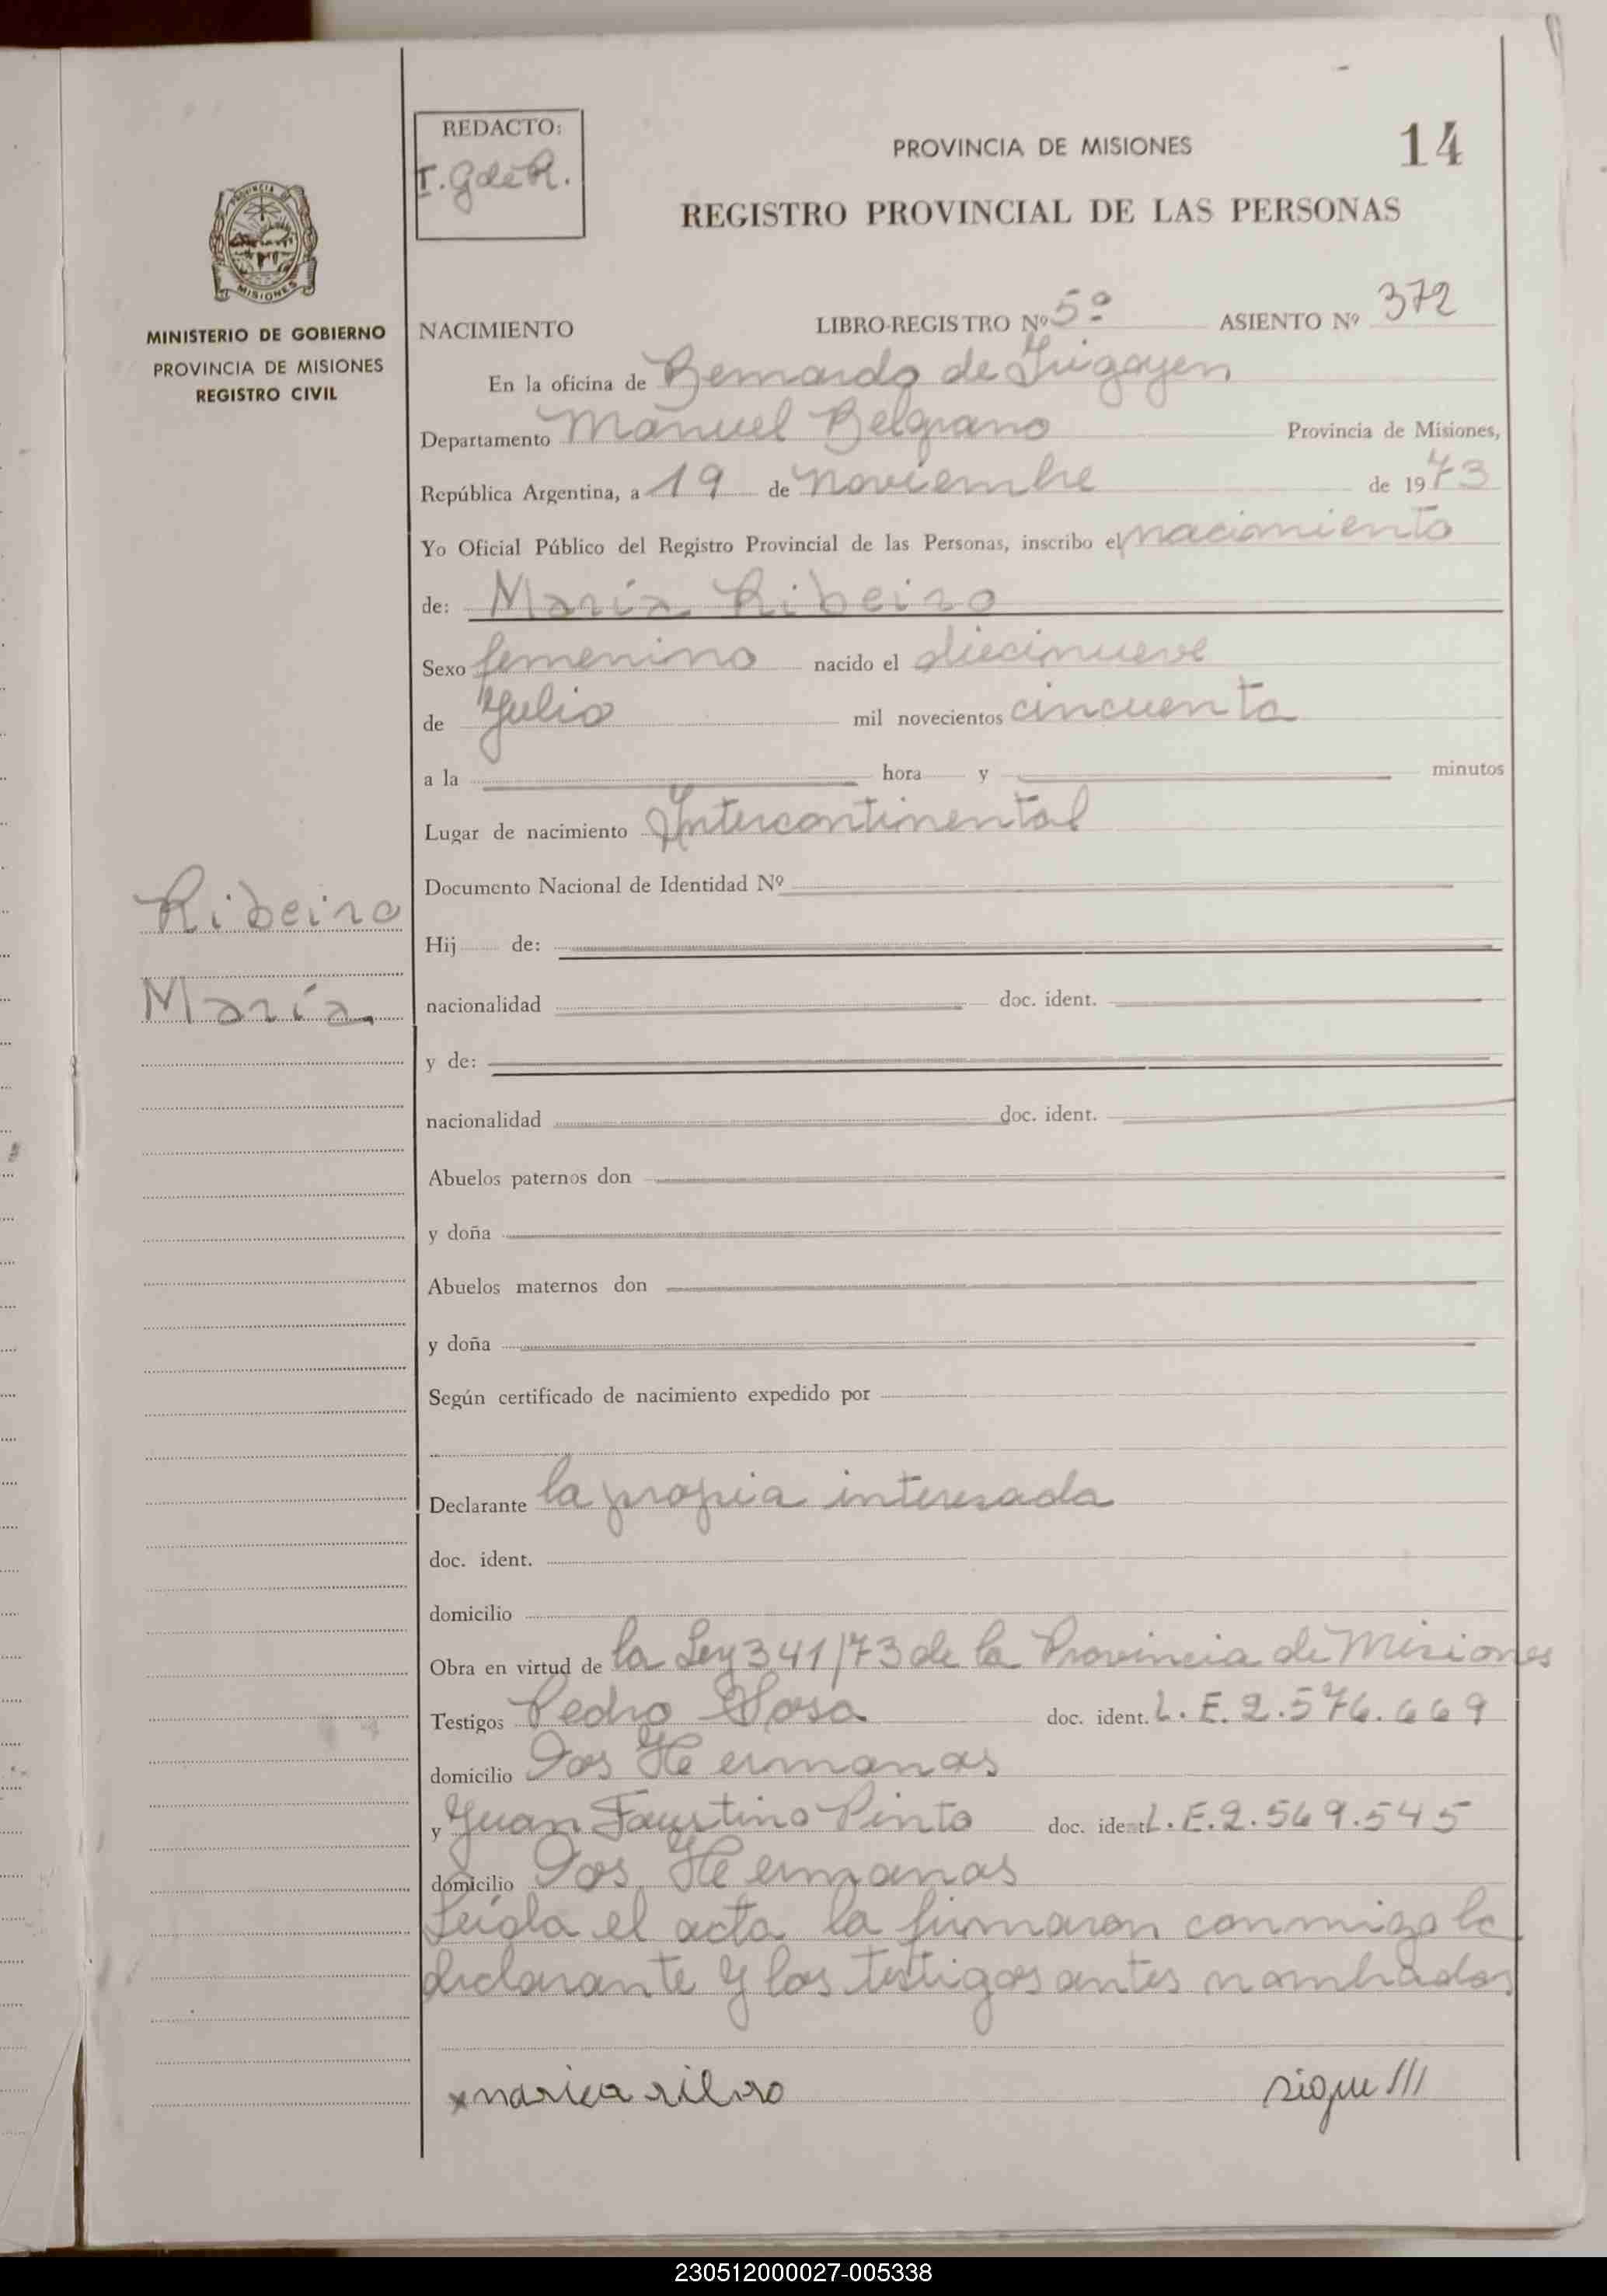 REDACTO:
I. G de R.
PROVINCIA DE MISIONES
14
REGISTRO PROVINCIAL DE LAS PERSONAS
PROVINCIA DE
MISIONES
MINISTERIO DE GOBIERNO
PROVINCIA DE MISIONES
REGISTRO CIVIL
NACIMIENTO LIBRO-REGISTRO Nº 5º ASIENTO Nº 372
En la oficina de Bernardo de Irigoyen
Departamento Manuel Belgrano Provincia de Misiones,
República Argentina, a 19 de noviembre de 1973
Yo Oficial Público del Registro Provincial de las Personas, inscribo el nacimiento
de: María Ribeiro
Sexo femenino nacido el diecinueve
de Julio mil novecientos cincuenta
a la hora y minutos
Lugar de nacimiento Intercontinental
Documento Nacional de Identidad Nº
Ribeiro
Hij de:
María
nacionalidad doc. ident.
y de:
nacionalidad doc. ident.
Abuelos paternos don
y doña
Abuelos maternos don
y doña
Según certificado de nacimiento expedido por
Declarante la propia interesada
doc. ident.
domicilio
Obra en virtud de la Ley 341/73 de la Provincia de Misiones
Testigos Pedro Sosa doc. ident. L. E. 2.576.669
domicilio Dos Hermanas
y Juan Faustino Pinto doc. ident. L. E. 2.569.545
domicilio Dos Hermanas
Leída el acta la firmaron conmigo la
declarante y los testigos antes nombrados
x marica rilro sigue ///
230512000027-005338